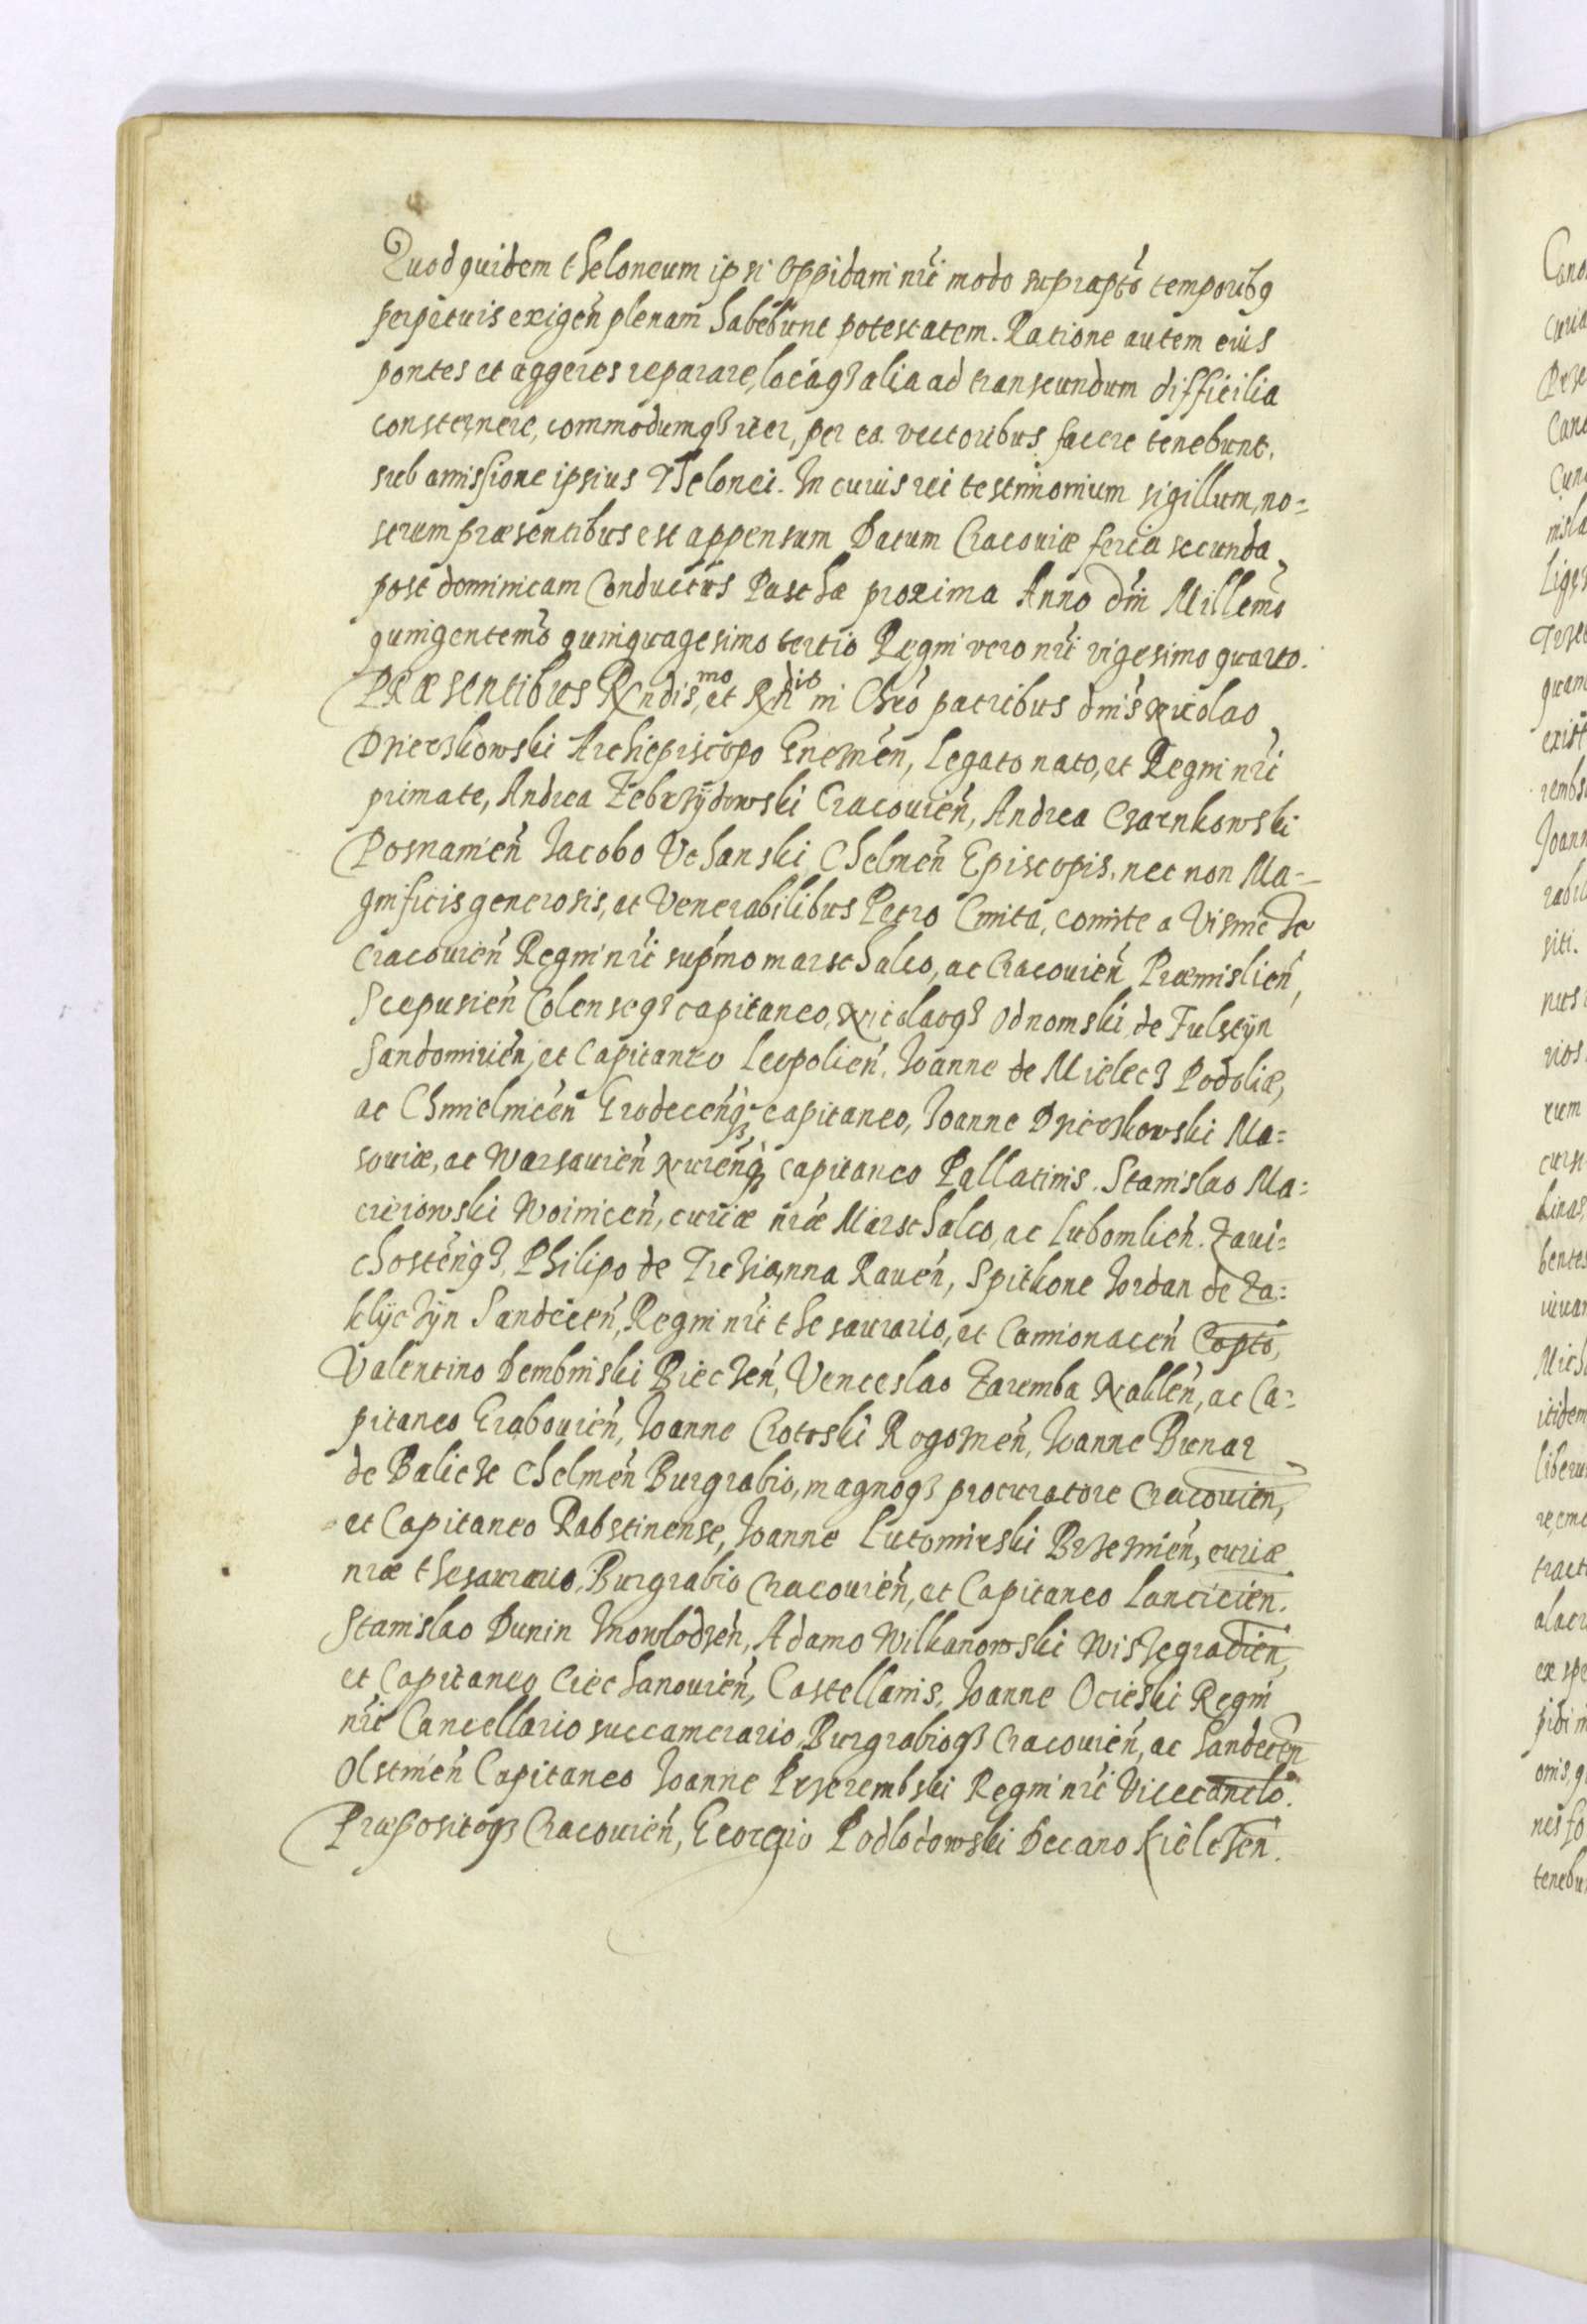 Quod quidem theloneum ipsi Oppidani nri modo suprapto temporibq
perpetuis exigen plenam habebunt potestatem. Ratione autem eius
pontes et aggeres reparare, locaqз alia ad transeundum difficilia
consternere, commodumqз iter, per ea vectoribus facere tenebunt,
sub amissione ipsius Thelonei. In cuius rei testimonium sigillum, no=
strum præsentibus est appensum Datum Cracoviæ feria secunda
post dominicam Conductus Paschæ proxima Anno dni Millemo
quingentemo quinquagesimo tertio Regni vero nri vigesimo quarto.
Præsentibus Rndis,mo et Rndis in Chro patribus dnis Nicolao
Dzierzkowski Archiepiscopo Gneznen, legato nato, et Regni nri
primate, Andrea Zebrzÿdowski Cracovien, Andrea Czarnkowski
Posnanien Jacobo Uchanski Chelmen Episcopis, nec non Ma=
gnificis generosis, et Venerabilibus Petro Cmita, comite a Visnicze
Cracovien Regni nri supmo marschalco, ac Cracovien Præmislien,
Scepusien Colenseqз capitaneo, Nicolaoqз Odnowski de Fulstÿn
Sandomirien, et Capitaneo Leopolien, Joanne de Mielecz Podoliæ,
ac Chmielnicen Grodecenqз capitaneo, Joanne Dzierzkowski Ma=
soviæ, ac Warsavien Nurenqз capitaneo Pallatinis. Stanislao Ma=
cieiowski Woinicen, curiæ nræ Marschalco, ac Lubomlien. Zavi=
chostenqз, Philipo de Trzhianna Raven, Spitkone Jordan de Za=
kliczÿn Sandecen, Regni nri thesaurario, et Camionacen Capto,
Valentino Dembinski Biechen, Venceslao Zaremba Naklen, ac Ca=
pitaneo Grabovien, Joanne Crotoski Rogoznen, Joanne Bonar
de Balicze Chelmen Burgrabio, magnoqз procuratore Cracovien,
et Capitaneo Rabstinense, Joanne Lutomirski Brzezinien, curiæ
nræ thesaurario, Burgrabio Cracovien, et Capitaneo Lancicien.
Stanislao Dunin Inowlodzen, Adamo Wilkanowski Wishegradien,
et Capitaneo Ciechanovien, Castellanis, Joanne Ocieski Regni
nri Cancellario succamerario, Burgrabioqз Cracovien, ac Sandecen
Olstinen Capitaneo Joanne Przerembski Regni nri Vicecanclo.
Præpositoqз Cracovien, Georgio Podlodowski Decano Kielczen.